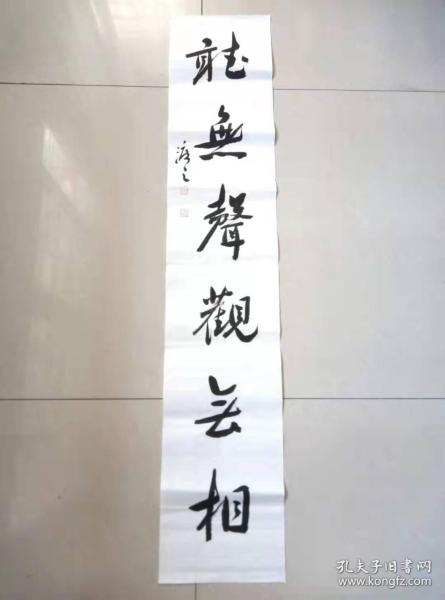 聽無聲觀无相
孔夫子旧书网
www.kongfz.com